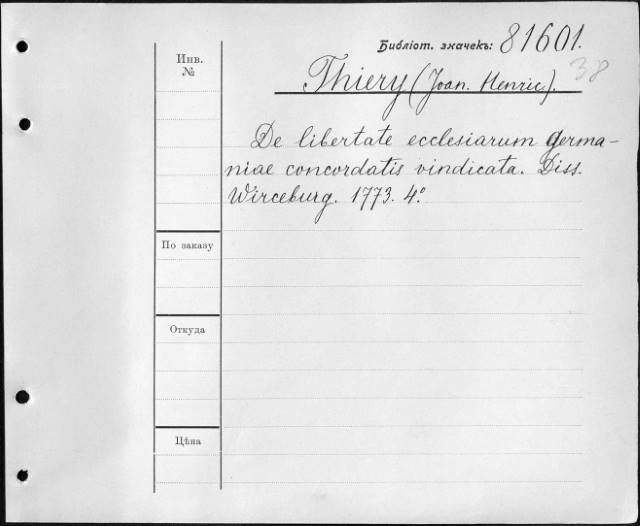 Библіот. значекъ: 81601.
38
Инв. №
Thiery (Joan. Henric.).
De libertate ecclesiarum germa-
niae concordatis vindicata. Diss.
Wirceburg. 1773. 4º.
По заказу
Откуда
Цѣна